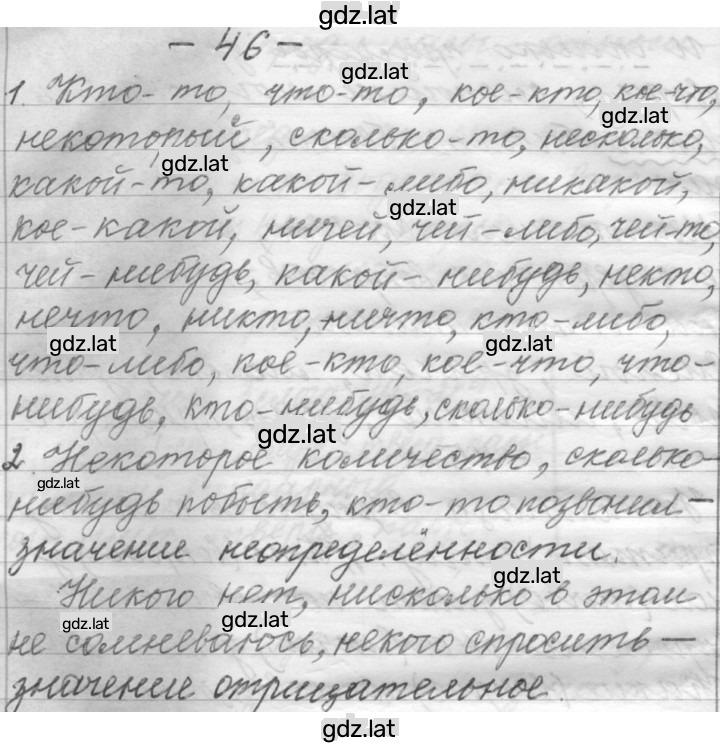 gdz.lat
- 46 -
gdz.lat
1. Кто-то, что-то, кое-кто, кое-что,
gdz.lat
некоторый, сколько-то, несколько,
gdz.lat
какой-то, какой-либо, никакой,
gdz.lat
кое-какой, ничей, чей-либо, чей-то,
чей-нибудь, какой-нибудь, некто,
нечто, никто, ничто, кто-либо,
gdz.lat gdz.lat
что-либо, кое-кто, кое-что, что-
нибудь, кто-нибудь, сколько-нибудь
gdz.lat
2. Некоторое количество, сколько-
gdz.lat
нибудь побыть, кто-то позвонил -
значение неопределённости.
gdz.lat
Никого нет, нисколько в этом
gdz.lat gdz.lat
не сомневаюсь, некого спросить -
значение отрицательное.
gdz.lat